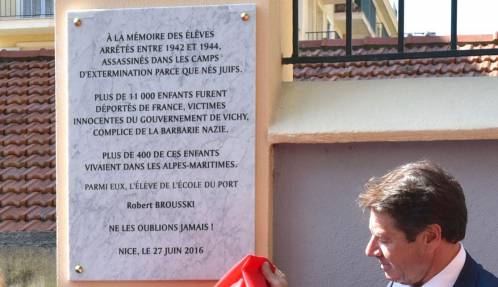 À LA MÉMOIRE DES ÉLÈVES
ARRÊTÉS ENTRE 1942 ET 1944,
ASSASSINÉS DANS LES CAMPS
D'EXTERMINATION PARCE QUE NÉS JUIFS.
PLUS DE 11 000 ENFANTS FURENT
DÉPORTÉS DE FRANCE, VICTIMES
INNOCENTES DU GOUVERNEMENT DE VICHY,
COMPLICE DE LA BARBARIE NAZIE.
PLUS DE 400 DE CES ENFANTS
VIVAIENT DANS LES ALPES-MARITIMES.
PARMI EUX, L'ÉLÈVE DE L'ÉCOLE DU PORT
Robert BROUSSKI
NE LES OUBLIONS JAMAIS !
NICE, LE 27 JUIN 2016